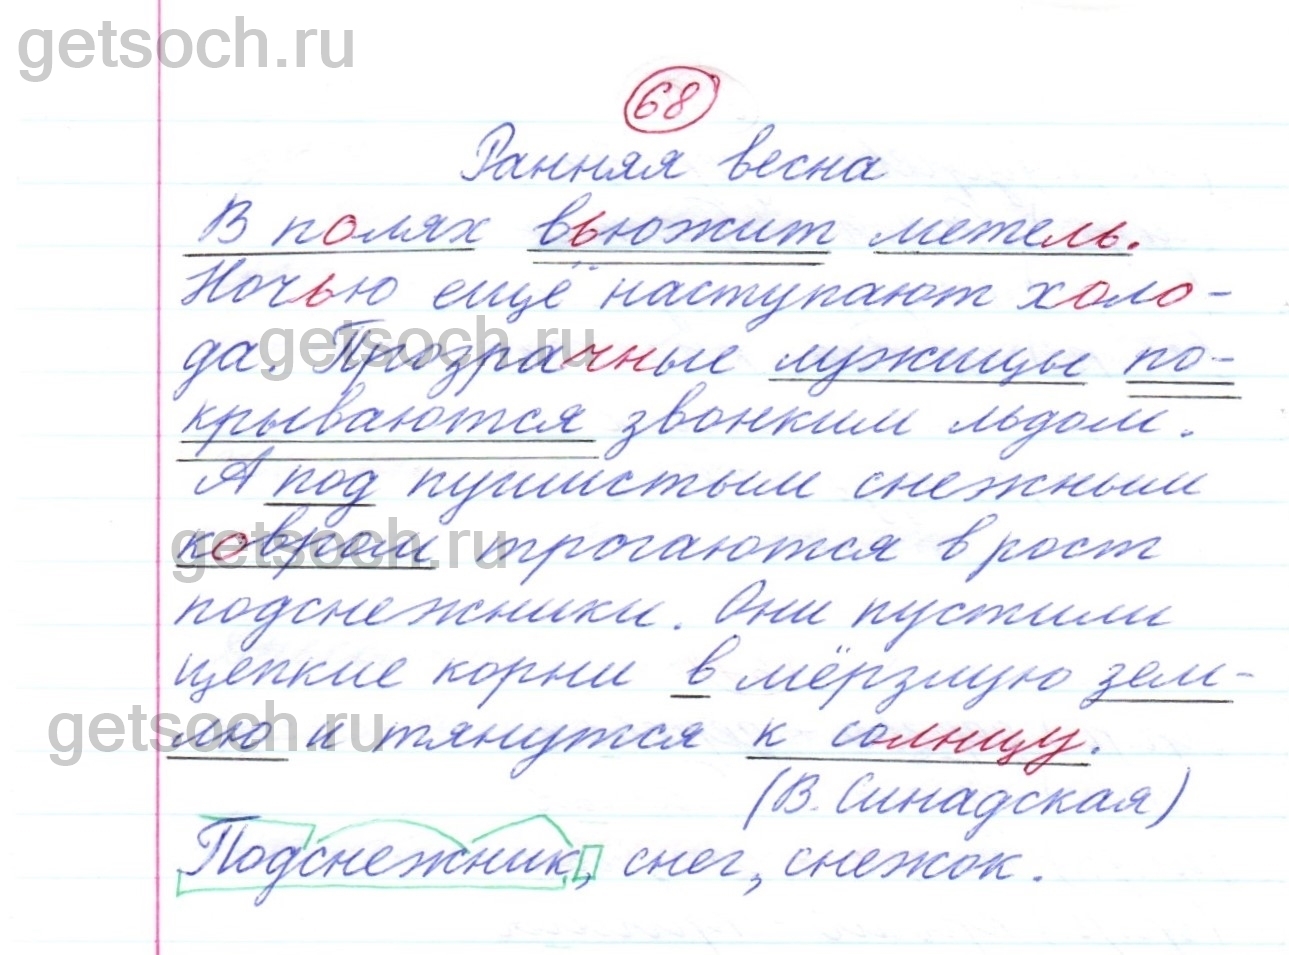 getsoch.ru
68
Ранняя весна
В полях вьюжит метель.
Ночью ещё наступают холо-
да. Прозрачные лужицы по-
getsoch.ru
крываются звонким льдом.
А под пушистым снежным
ковром трогаются в рост
getsoch.ru
подснежники. Они пустили
цепкие корни в мёрзлую зем-
лю и тянутся к солнцу.
getsoch.ru
(В. Синадская)
Подснежник, снег, снежок.